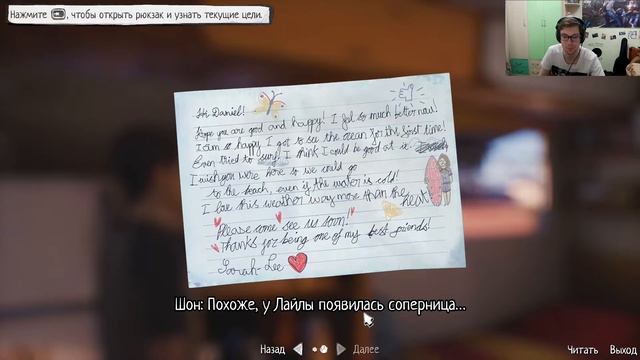 Нажмите , чтобы открыть рюкзак и узнать текущие цели.
Hi Daniel!
Hope you are good and happy! I feel so much better now!
I am so happy I got to see the ocean for the first time!
Even tried to surf! I think I could be good at it.
I wish you were here so we could go
to the beach, even if the water is cold!
I love this weather way more than the heat
Please come see us soon!
Thanks for being one of my best friends!
Sarah-Lee
Шон: Похоже, у Лайлы появилась соперница...
Назад Далее
Читать Выход